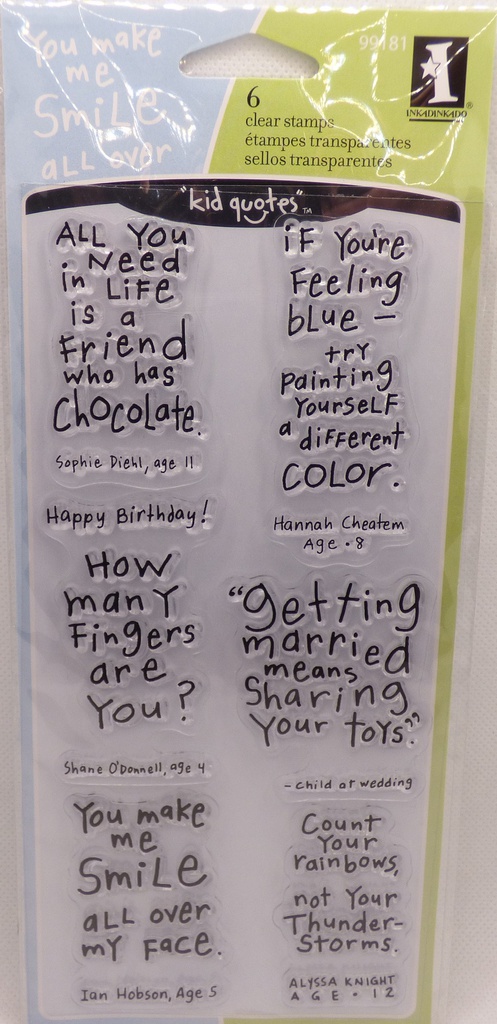 You make
me
Smile
all over
99181
1
INKADINKADO®
6
clear stamps
étampes transparentes
sellos transparentes
"kid quotes"™
ALL You
Need
in Life
is a
Friend
who has
Chocolate.
Sophie Diehl, age 11
Happy Birthday!
How
many
Fingers
are
You?
Shane O'Donnell, age 4
You make
me
Smile
all over
my Face.
Ian Hobson, Age 5
if You're
Feeling
blue –
try
painting
YourseLF
a different
COLOR.
Hannah Cheatem
Age • 8
"getting
married
means
Sharing
Your toys."
- child at wedding
Count
Your
rainbows,
not Your
Thunder-
Storms.
ALYSSA KNIGHT
AGE • 12